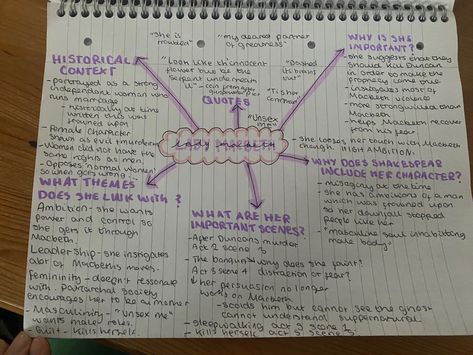 "she is
troubled"
"my dearest partner
of greatness"
"Look like th'innocent
flower but be the
serpent underneath
it"
"Dashed
its brains
out"
QUOTES
"Unsex
me"
Lady Macbeth
HISTORICAL
CONTEXT
- portrayed as a strong
independent woman who
runs marriage
- historically at time
written this was
frowned upon
- Female character
shown as evil (murderer)
- Women did not have the
same rights as men
- Opposes 'normal women'
so when goes wrong
WHY IS SHE
IMPORTANT?
- she suggests that they
should kill Duncan
in order to make the
prophecy come true
- instigates most of
Macbeth violence
- more strongwilled than
Macbeth
- helps Macbeth recover
from his fear
- she loses her touch with Macbeth
though. HIGH AMBITION.
WHY DOES SHAKESPEAR
INCLUDE HER CHARACTER?
- misogyny at the time
- she has ambitions of a man
which was frowned upon
so her downfall stopped
people like her
- "masculine soul inhabiting
female body"
WHAT THEMES
DOES SHE LINK WITH?
Ambition - she wants
power and control so
she gets it through
Macbeth.
Leadership - she instigates
alot of Macbeths moves.
Femininity - doesn't resonate
with. Patriarchal society
encourages her to be
Masculinity - "Unsex me"
wants males roles.
- Guilt - kills herself
WHAT ARE HER
IMPORTANT SCENES?
- After Duncans murder
Act 2 scene 3
- The banquet
Act 3 scene 4
why does she faint?
distraction or fear?
↓ her persuasion no longer
works on Macbeth
- scolds him but cannot see the ghost
cannot understand supernatural
- sleepwalking act 5 scene 1
- kills herself act 5 scene 5